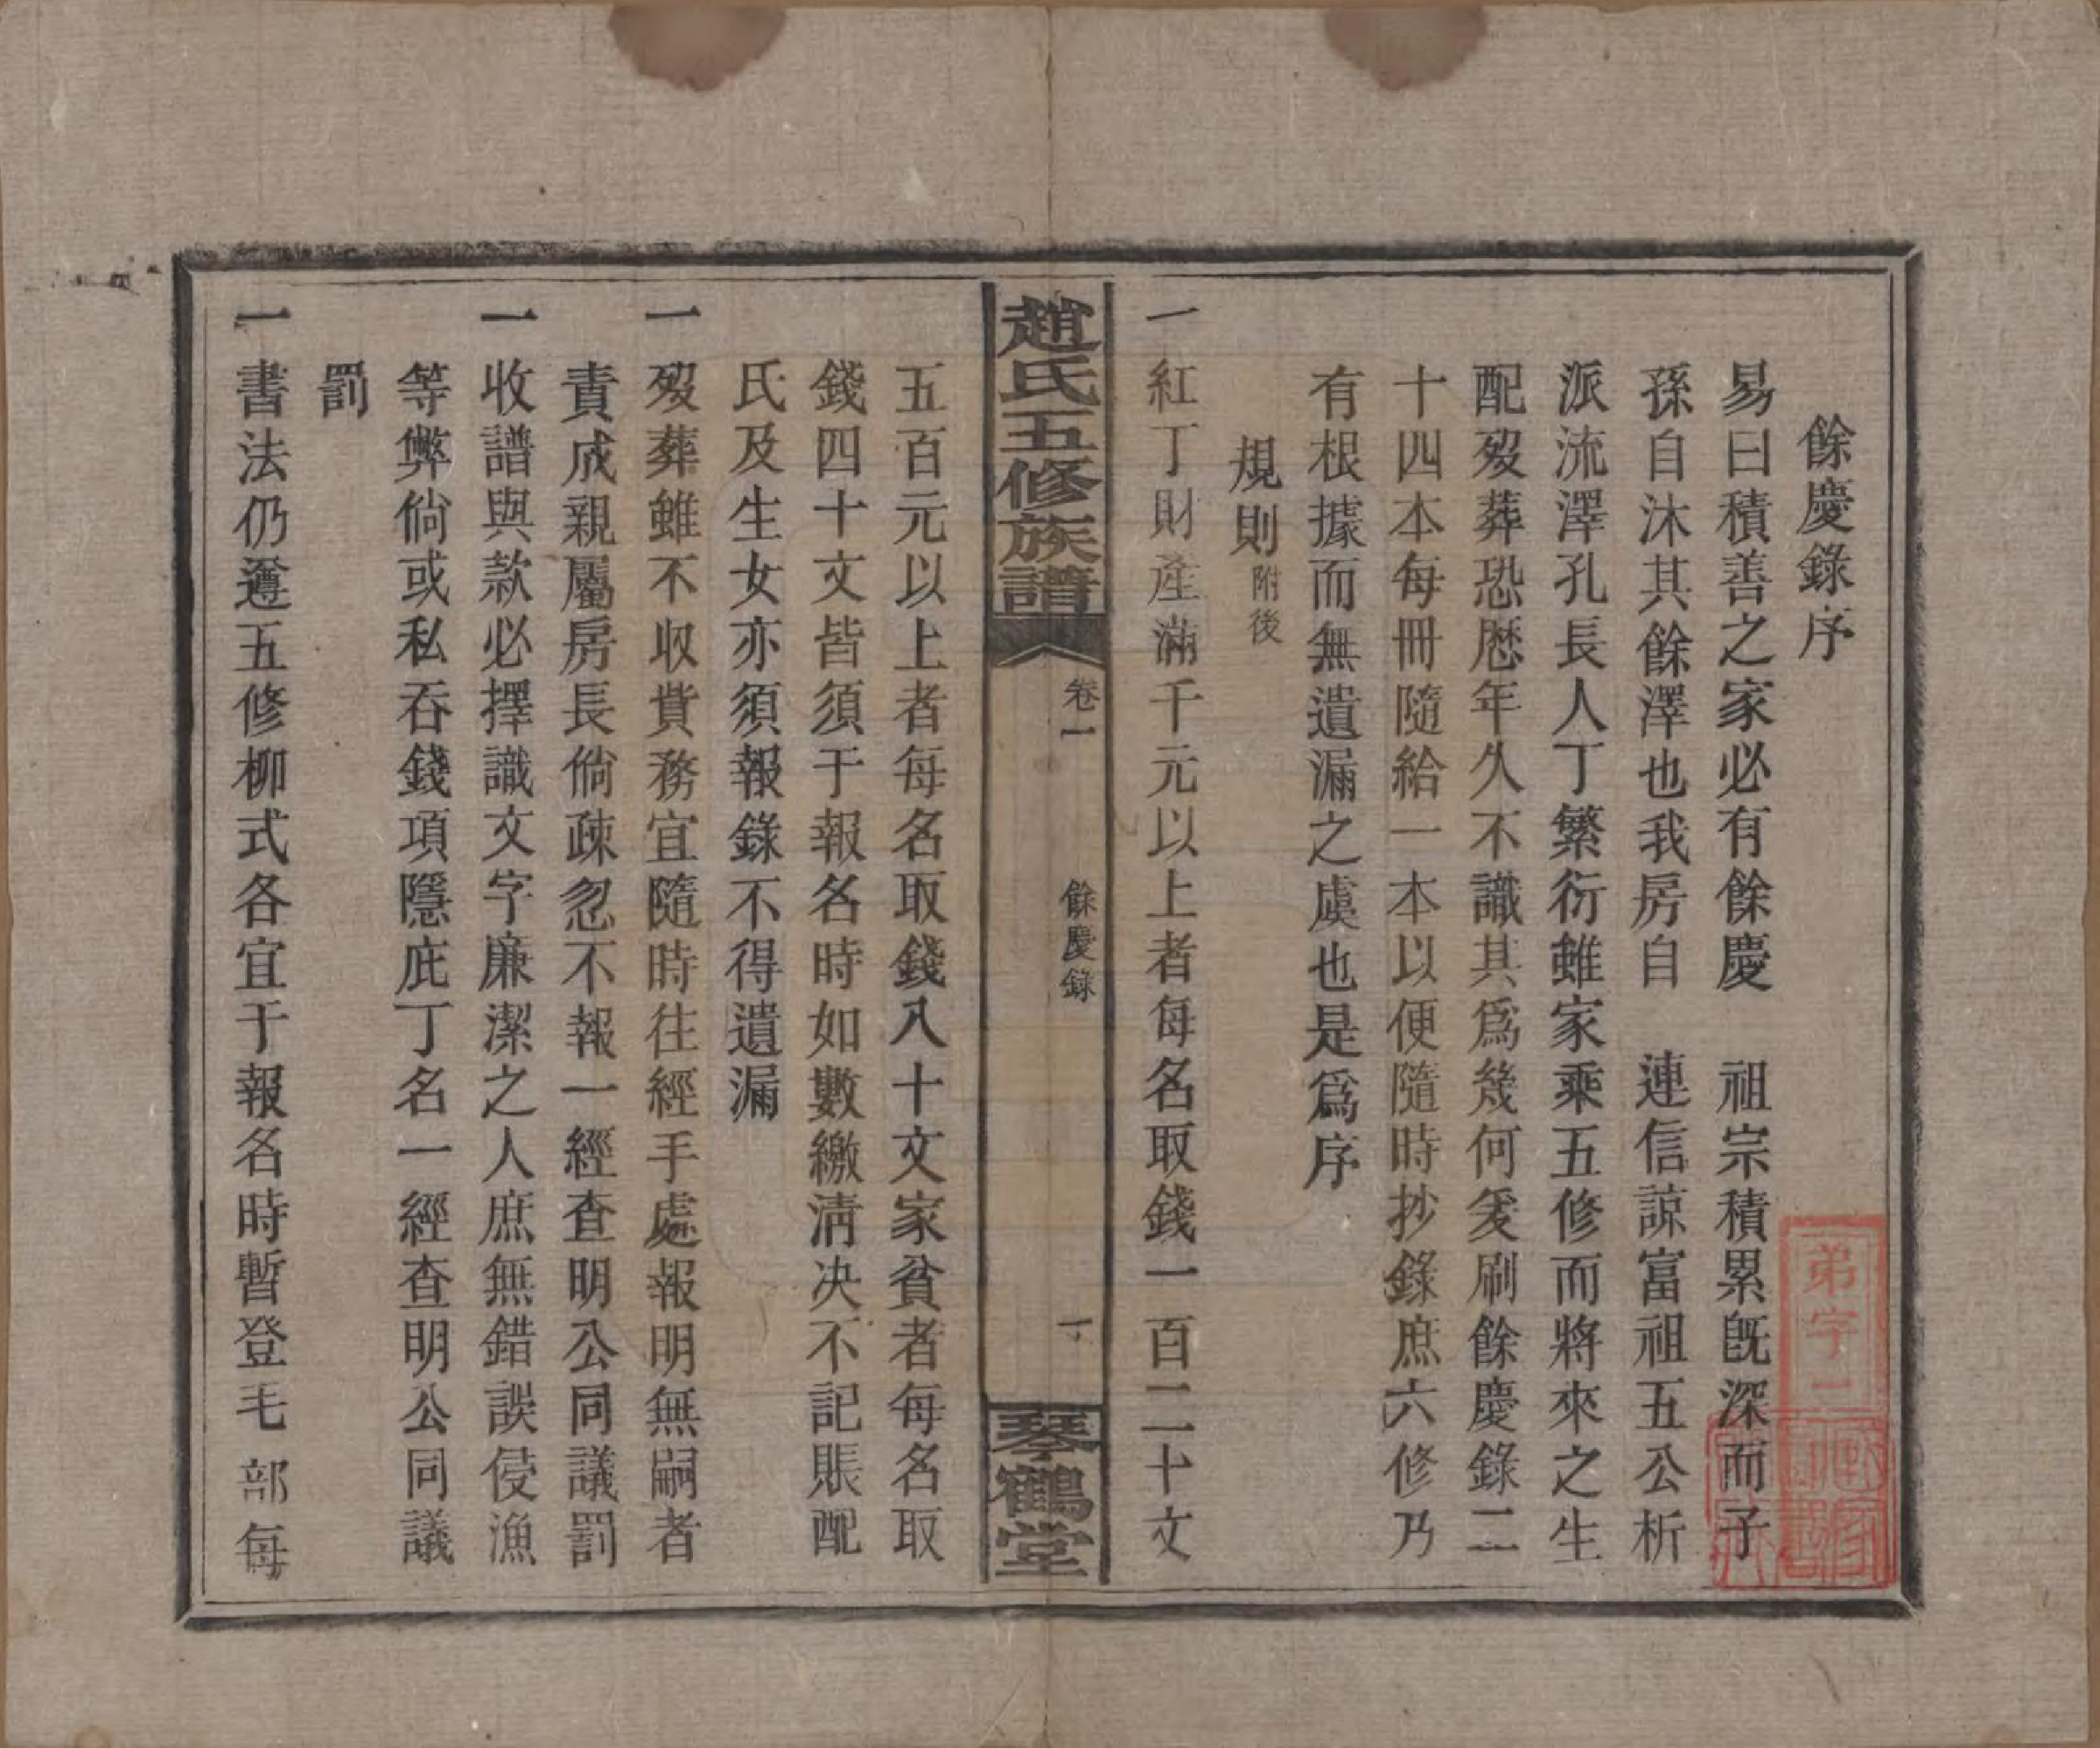 餘慶錄序
易曰積善之家必有餘慶　祖宗積累旣深而子
孫自沐其餘澤也我房自　連信諒富祖五公析
派流澤孔長人丁繁衍雖家乘五修而將來之生
配歿葬恐歷年久不識其爲幾何爰刷餘慶錄二
十四本每冊隨給一本以便隨時抄錄庶六修乃
有根據而無遺漏之虞也是爲序
規則附後
一紅丁財產滿千元以上者每名取錢一百二十文
趙氏五修族譜　卷一　餘慶錄　一　琴鶴堂
五百元以上者每名取錢八十文家貧者每名取
錢四十文皆須于報名時如數繳清决不記賬配
氏及生女亦須報錄不得遺漏
一歿葬雖不收費務宜隨時往經手處報明無嗣者
責成親屬房長倘疎忽不報一經查明公同議罰
一收譜與款必擇識文字廉潔之人庶無錯誤侵漁
等弊倘或私吞錢項隱庇丁名一經查明公同議
罰
一書法仍遵五修柳式各宜于報名時暫登毛部每
弟字二